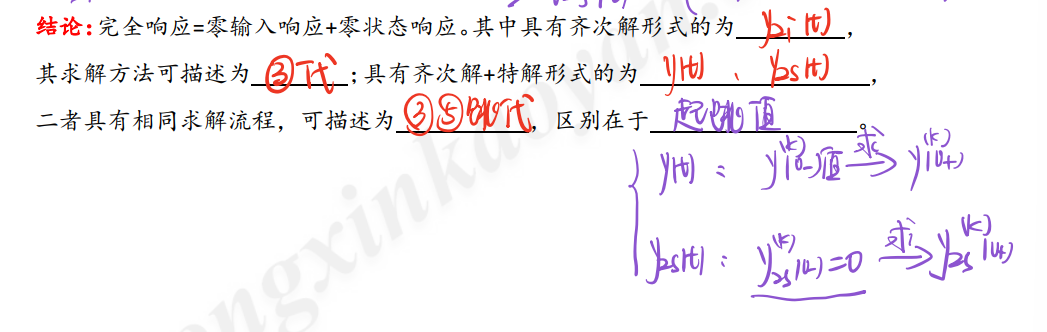 结论:完全响应=零输入响应+零状态响应。其中具有齐次解形式的为 yzi(t) ,
其求解方法可描述为 ③代 ;具有齐次解+特解形式的为 y(t) 、 yzs(t) ,
二者具有相同求解流程,可描述为 ③⑤跳代 ,区别在于 起跳值 。
y(t) : y^(k)(0-)值 求→ y^(k)(0+)
yzs(t) : yzs^(k)(0-)=0 求→ yzs^(k)(0+)